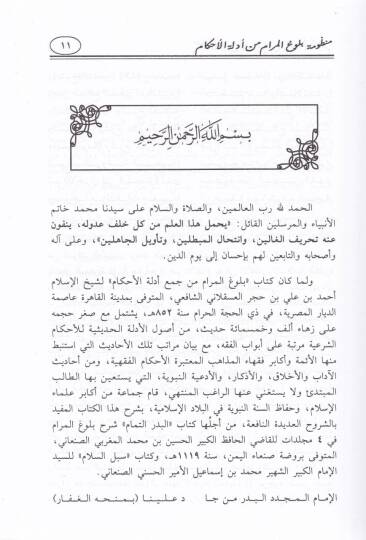 منظومة بلوغ المرام من أدلة الأحكام
١١
بسم الله الرحمن الرحيم
الحمد لله رب العالمين، والصلاة والسلام على سيدنا محمد خاتم
الأنبياء والمرسلين القائل: «يحمل هذا العلم من كل خلف عدوله، ينفون
عنه تحريف الغالين، وانتحال المبطلين، وتأويل الجاهلين»، وعلى آله
وأصحابه والتابعين لهم بإحسان إلى يوم الدين.
ولما كان كتاب «بلوغ المرام من جمع أدلة الأحكام» لشيخ الإسلام
أحمد بن علي بن حجر العسقلاني الشافعي، المتوفى بمدينة القاهرة عاصمة
الديار المصرية، في ذي الحجة الحرام سنة ٨٥٢هـ، يشتمل مع صغر حجمه
على زهاء ألف وخمسمائة حديث، من أصول الأدلة الحديثية للأحكام
الشرعية مرتبة على أبواب الفقه، مع بيان مراتب تلك الأحاديث التي استنبط
منها الأئمة وأكابر فقهاء المذاهب المعتبرة الأحكام الفقهية، ومن أحاديث
الآداب والأخلاق، والأذكار، والأدعية النبوية، التي يستعين بها الطالب
المبتدئ ولا يستغني عنها الراغب المنتهي، قام جماعة من أكابر علماء
الإسلام، وحفاظ السنة النبوية في البلاد الإسلامية، بشرح هذا الكتاب المفيد
بالشروح العديدة النافعة، من أجلها كتاب «البدر التمام» شرح بلوغ المرام
في ٤ مجلدات للقاضي الحافظ الكبير الحسين بن محمد المغربي الصنعاني،
المتوفى بروضة صنعاء اليمن، سنة ١١١٩هـ، وكتاب «سبل السلام» للسيد
الإمام الكبير الشهير محمد بن إسماعيل الأمير الحسني الصنعاني.
الإمام المجدد البدر من جا د علينا (بمنحه الغفار)